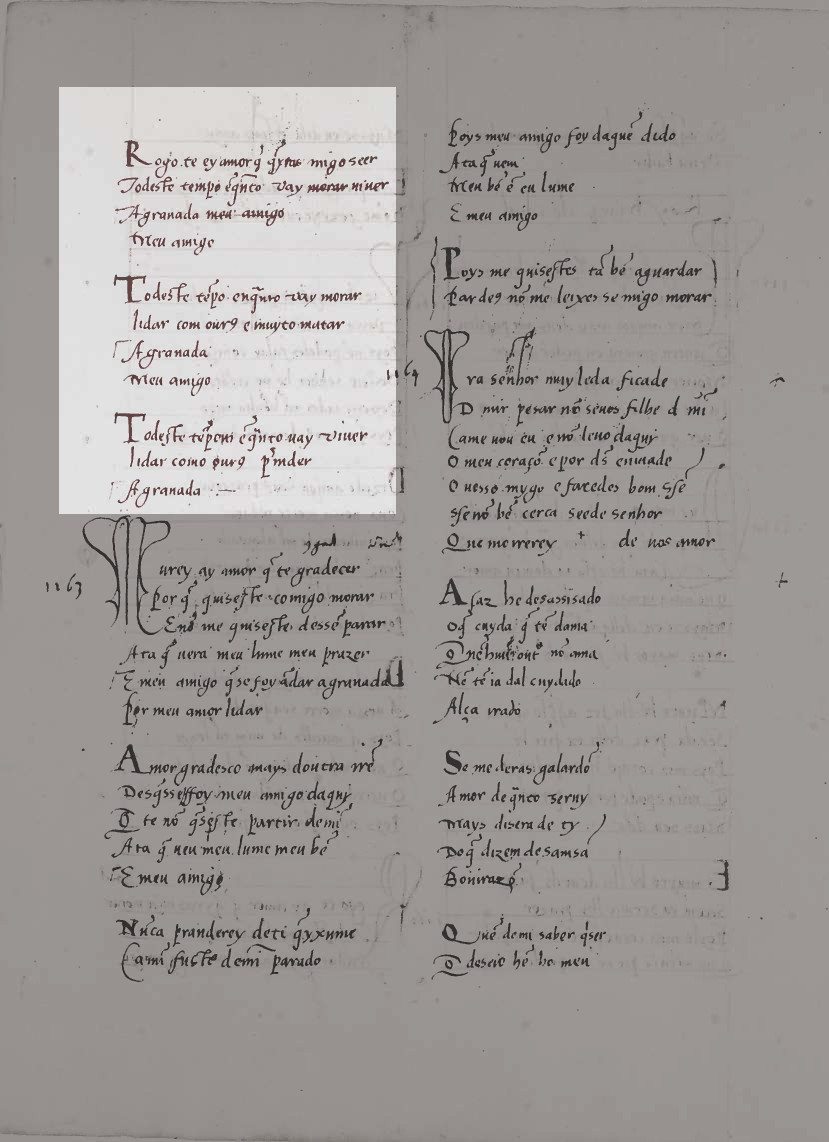 Rogo te ey amor q̃ q̃yras migo seer
Todeste tempo eq̃nto vay morar viver
Agranada meu amigo
Meu amigo
Todeste tẽpo enq̃nto vay morar
lidar com ourꝯ e muyto matar
Agranada
Meu amigo
Todeste tẽpem eq̃nto vay viver
lidar como ourꝯ prẽnder
Agranada
1163
Murey ay amor q̃ te gradecer
Por q̃ quiseste comigo morar
E nõ me quiseste desse parar
Ata q̃ vera meu lume meu prazer
E meu amigo q̃ se foy ãdar agranada
Por meu amor lidar
Amor gradesco mays doutra rrẽ
Desq̃ssefoy meu amigo daquj
Q te nõ q̃seste partir de mĩ
Ata q̃ veu meu lume meu bẽ
E meu amigo
Nũca pranderey deti q̃yxume
Ca amĩ fuste demĩ parado
Poys meu amigo foy daquẽ dido
Ata q̃ vem
Meu bẽ ẽ eu lume
E meu amigo
Poys me quisestes tã bẽ aguardar
Par deꝯ nõ me leixes se migo morar
1164
Mra senhor muy leda ficade
D mir pesar nõ senos filhe d mĩ
Came vou eu e nõ levo daquj
O meu coraçõ e por dš enviade
O vosso mygo e faredes bom ssẽ
Sse nõ bẽ cerca seede senhor
Que morrerey + de vos amor
Afaz he desassisado
Oq̃ cuyda q̃ tẽ dama
nõ ama
Nẽ tẽ ia dal cuydado
Alca irado
Se me deras galardõ
Amor de q̃nto servy
Mays disera de ty
Doq̃ dizem de Samsã
Bonirazõ
Quẽ demi saber q̃ser
O deseio hẽ ho meu